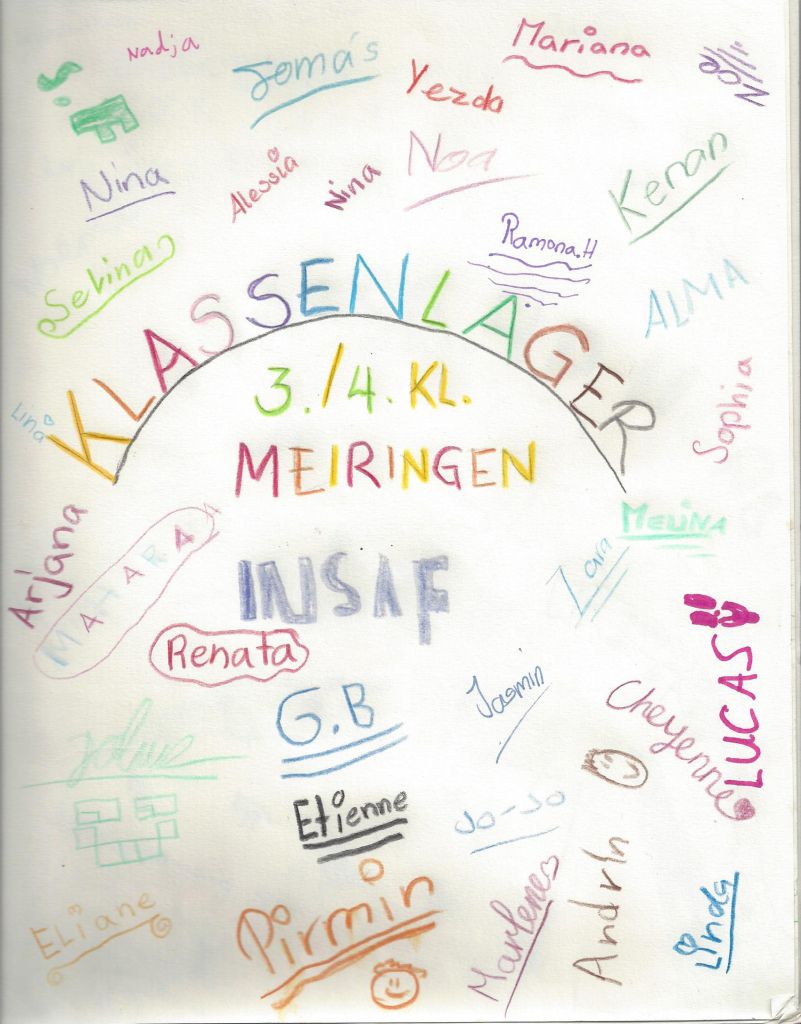 Nadja
Tomás
Yezda
Mariana
Nina
Alessia
Nina
Noa
Kenan
Ramona.H
ALMA
KLASSENLAGER
3./4. KL.
MEIRINGEN
Lina
Sophia
Arjana
MATARA
INSAF
MELINA
Zara
Renata
G.B
Jasmin
Cheyenne
LUCAS
Etienne
Jo-Jo
Eliane
Pirmin
Marlene
AndrIn
Linda